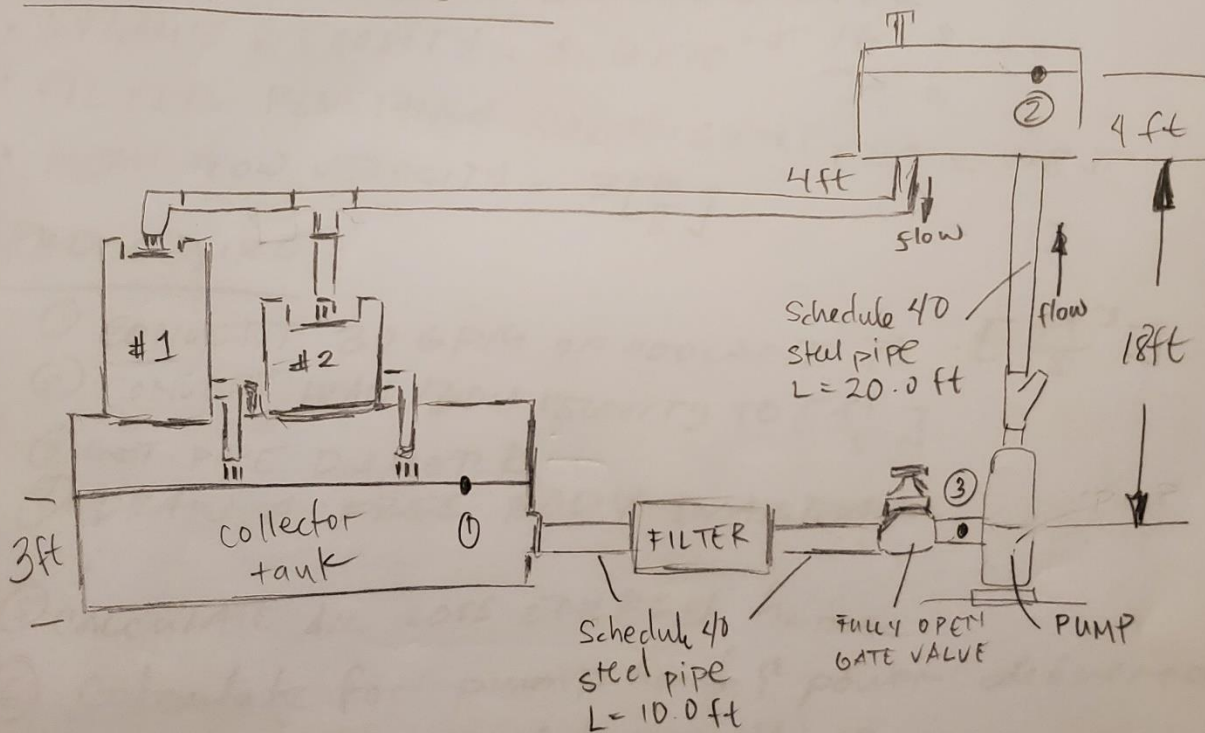 ②
4 ft
4ft
flow
Schedule 40
steel pipe
L = 20.0 ft
flow
18ft
#1
#2
3ft
collector
tank
①
FILTER
③
Schedule 40
steel pipe
L= 10.0 ft
FULLY OPEN
GATE VALVE
PUMP